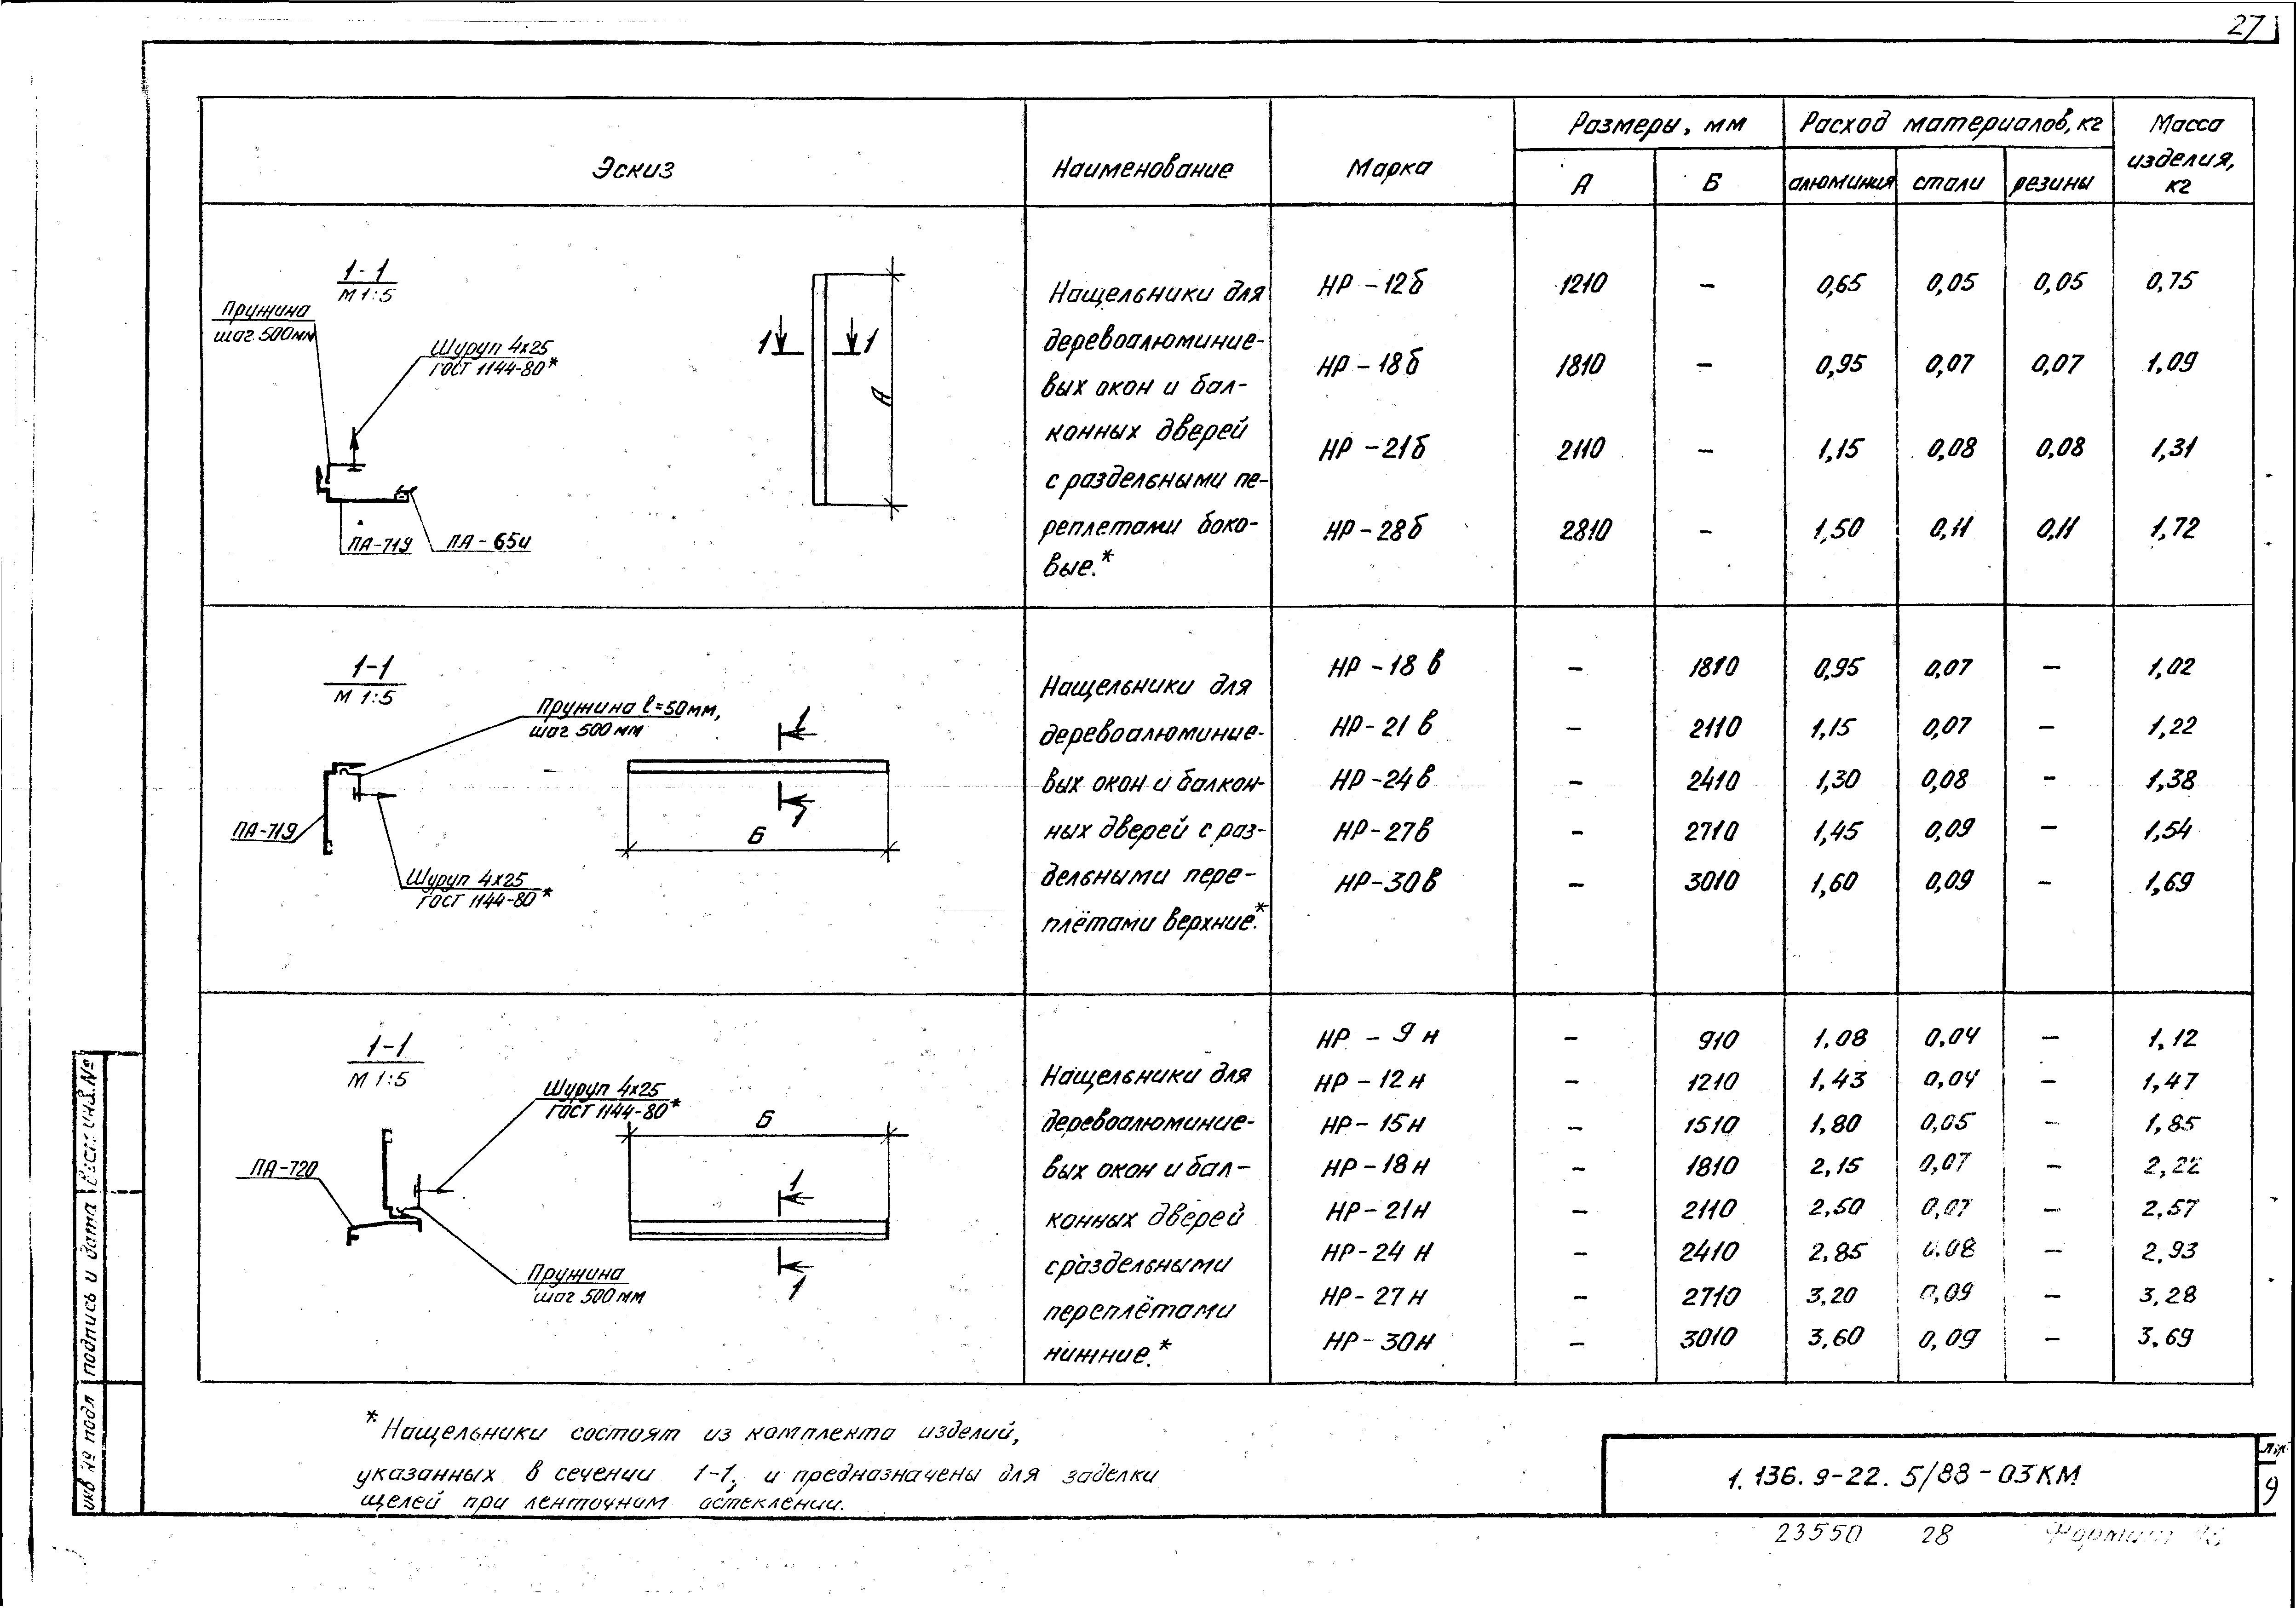 27
Эскиз
Наименование
Марка
Размеры, мм
А
Б
Расход материалов, кг
алюминия
стали
резины
Масса
изделия,
кг
1-1
М 1:5
Пружина
шаг 500мм
Шуруп 4х25
ГОСТ 1144-80*
ПА-719
ПА-65и
1
1
А
Нащельники для
деревоалюминие-
вых окон и бал-
конных дверей
с раздельными пе-
реплетами боко-
вые.*
НР-12б 1210 – 0,65 0,05 0,05 0,75
НР-18б 1810 – 0,95 0,07 0,07 1,09
НР-21б 2110 – 1,15 0,08 0,08 1,31
НР-28б 2810 – 1,50 0,11 0,11 1,72
1-1
М 1:5
Пружина l=50мм,
шаг 500мм
ПА-719
Шуруп 4х25
ГОСТ 1144-80*
1
1
Б
Нащельники для
деревоалюминие-
вых окон и балкон-
ных дверей с раз-
дельными пере-
плётами верхние.*
НР-18в – 1810 0,95 0,07 – 1,02
НР-21в – 2110 1,15 0,07 – 1,22
НР-24в – 2410 1,30 0,08 – 1,38
НР-27в – 2710 1,45 0,09 – 1,54
НР-30в – 3010 1,60 0,09 – 1,69
1-1
М 1:5
Шуруп 4х25
ГОСТ 1144-80*
ПА-720
Пружина
шаг 500мм
Б
1
1
Нащельники для
деревоалюминие-
вых окон и бал-
конных дверей
с раздельными
переплётами
нижние.*
НР-9н – 910 1.08 0,04 – 1,12
НР-12н – 1210 1,43 0,04 – 1,47
НР-15н – 1510 1,80 0,05 – 1,85
НР-18н – 1810 2,15 0,07 – 2,22
НР-21н – 2110 2,50 0,07 – 2,57
НР-24н – 2410 2,85 0.08 – 2,93
НР-27н – 2710 3,20 0,09 – 3,28
НР-30н – 3010 3,60 0,09 – 3.69
* Нащельники состоят из комплекта изделий,
указанных в сечении 1-1, и предназначены для заделки
щелей при ленточном остеклении.
1.136.9-22.5/88-03КМ
9
23550 28 Формат
инв № подл
подпись и дата
инв.№